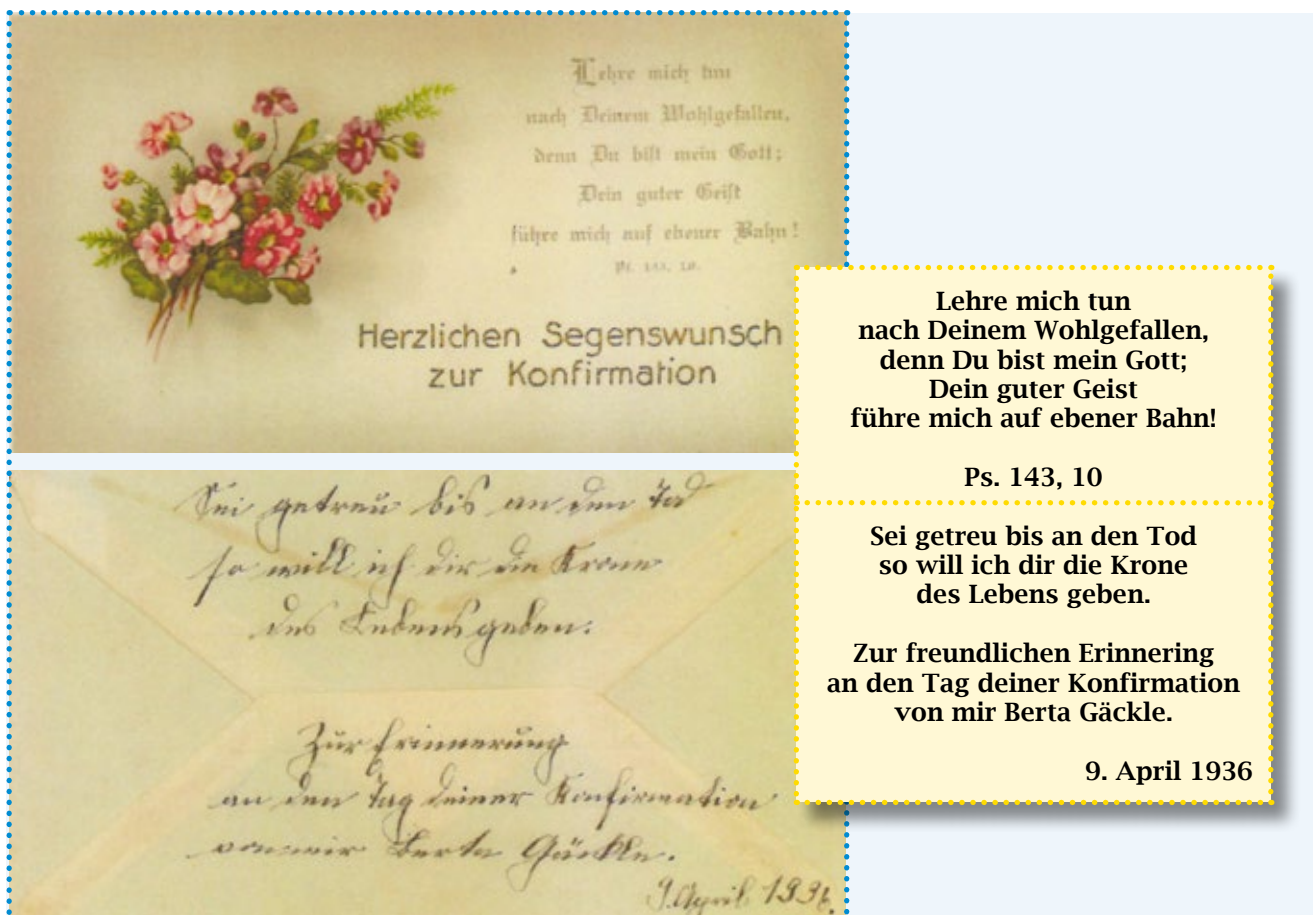 Lehre mich tun
nach Deinem Wohlgefallen,
denn Du bist mein Gott;
Dein guter Geist
führe mich auf ebener Bahn!
Ps. 143, 10.
Herzlichen Segenswunsch
zur Konfirmation
Sei getreu bis an den Tod
so will ich dir die Krone
des Lebens geben.
Zur Erinnerung
an den Tag deiner Konfirmation
von mir Berta Gäckle.
9. April 1936.
Lehre mich tun
nach Deinem Wohlgefallen,
denn Du bist mein Gott;
Dein guter Geist
führe mich auf ebener Bahn!
Ps. 143, 10
Sei getreu bis an den Tod
so will ich dir die Krone
des Lebens geben.
Zur freundlichen Erinnering
an den Tag deiner Konfirmation
von mir Berta Gäckle.
9. April 1936